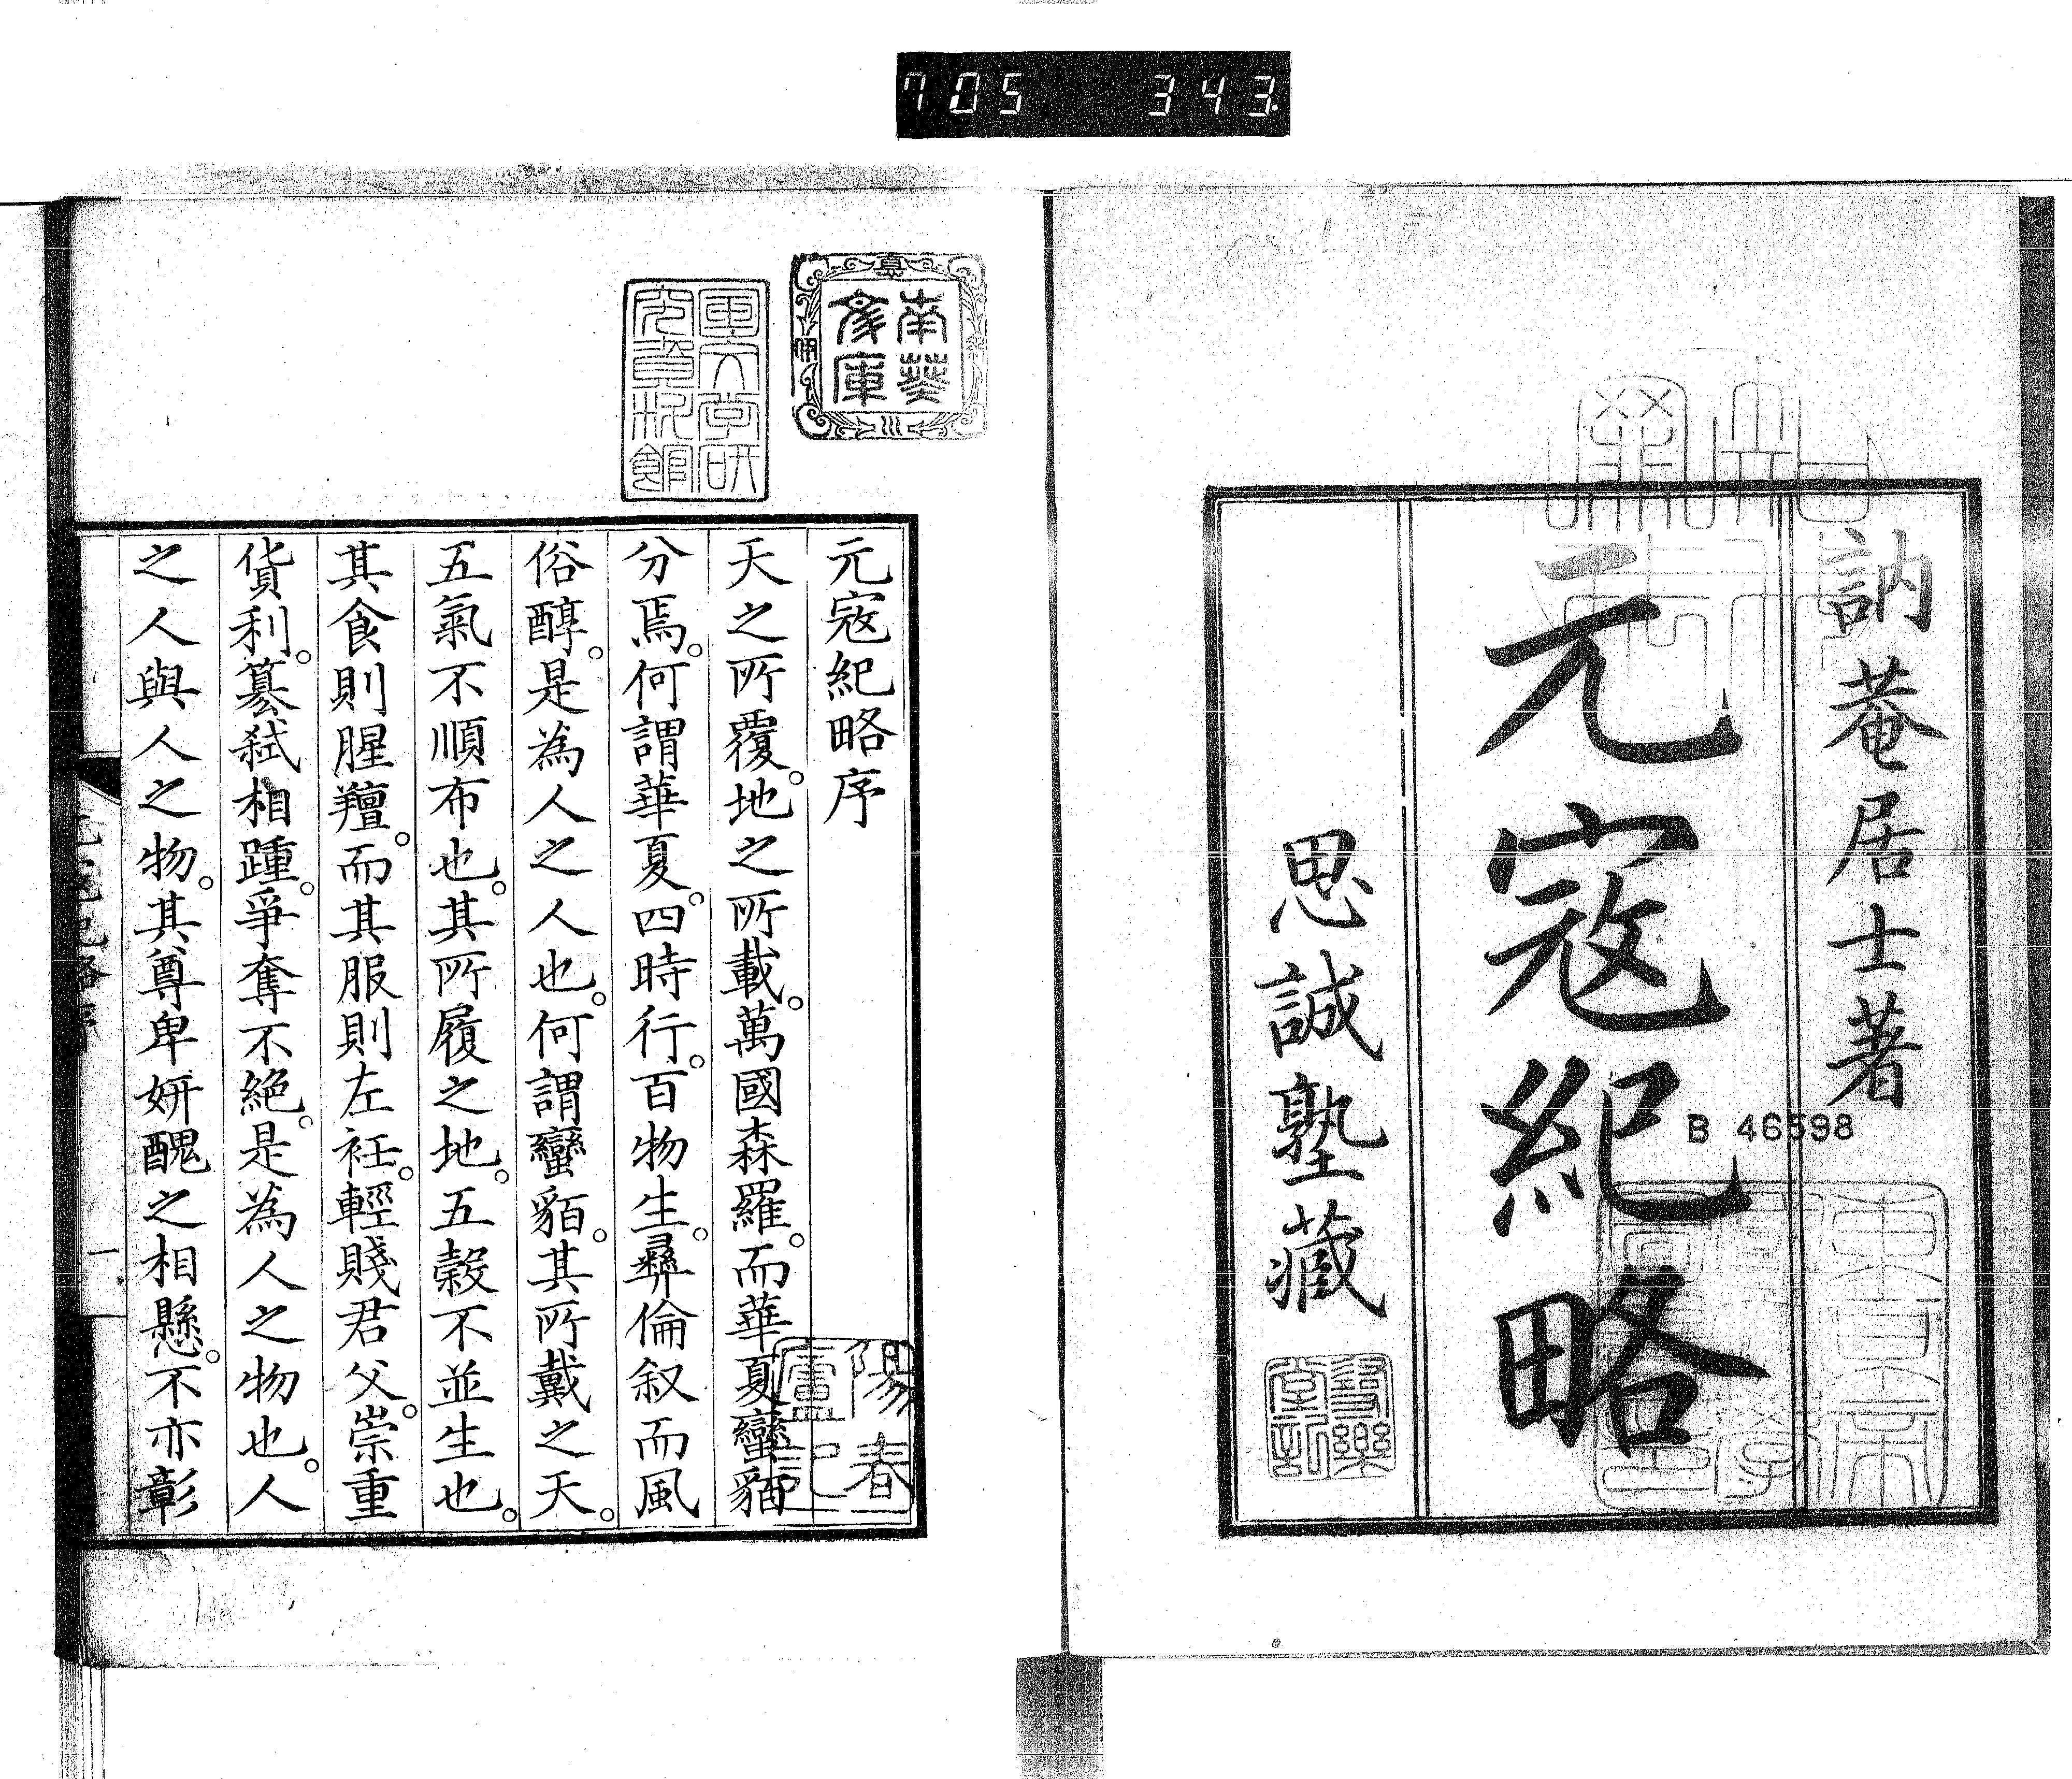 705 343
訥菴居士著
元寇紀略
思誠塾藏
B 46598
南葵
文庫
元寇紀略序
天之所覆。地之所載。萬國森羅。而華夏蠻貊
分焉。何謂華夏。四時行。百物生。彜倫叙而風
俗醇。是為人之人也。何謂蠻貊。其所戴之天。
五氣不順布也。其所履之地。五穀不並生也。
其食則腥羶。而其服則左衽。輕賤君父。崇重
貨利。簒弑相踵。爭奪不絶。是為人之物也。人
之人與人之物。其尊卑妍醜之相懸。不亦彰
陽春
廬記
一